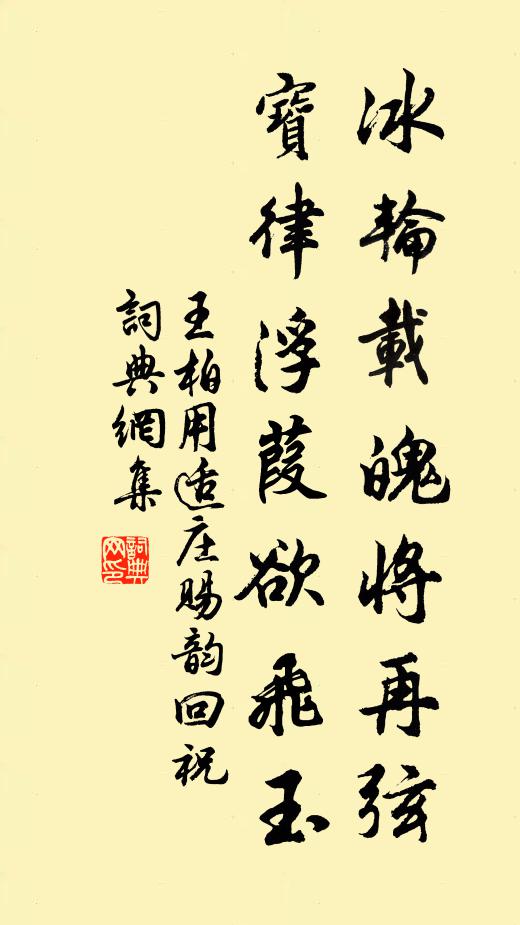 冰輪載魄將再弦
寶律浮葭欲飛玉
王柏用适庄賜韵回祝
詞典網集
詞典网印